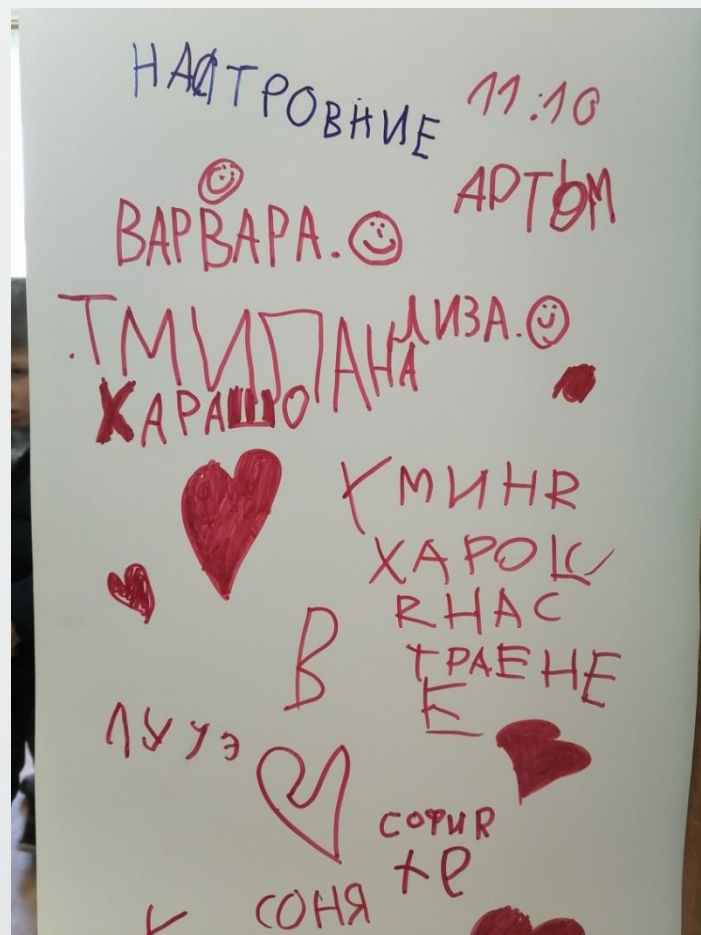 НАСТРОВНИЕ 11:10
АРТЁМ
ВАРВАРА.
ЛИЗА.
.ТМИПАНА
ХАРАШО
УМИНЯ
ХАРОШ
ЯНАС
ТРАЕНЕ
Е
В
ЛУУЭ
СОФИЯ
+е
СОНЯ